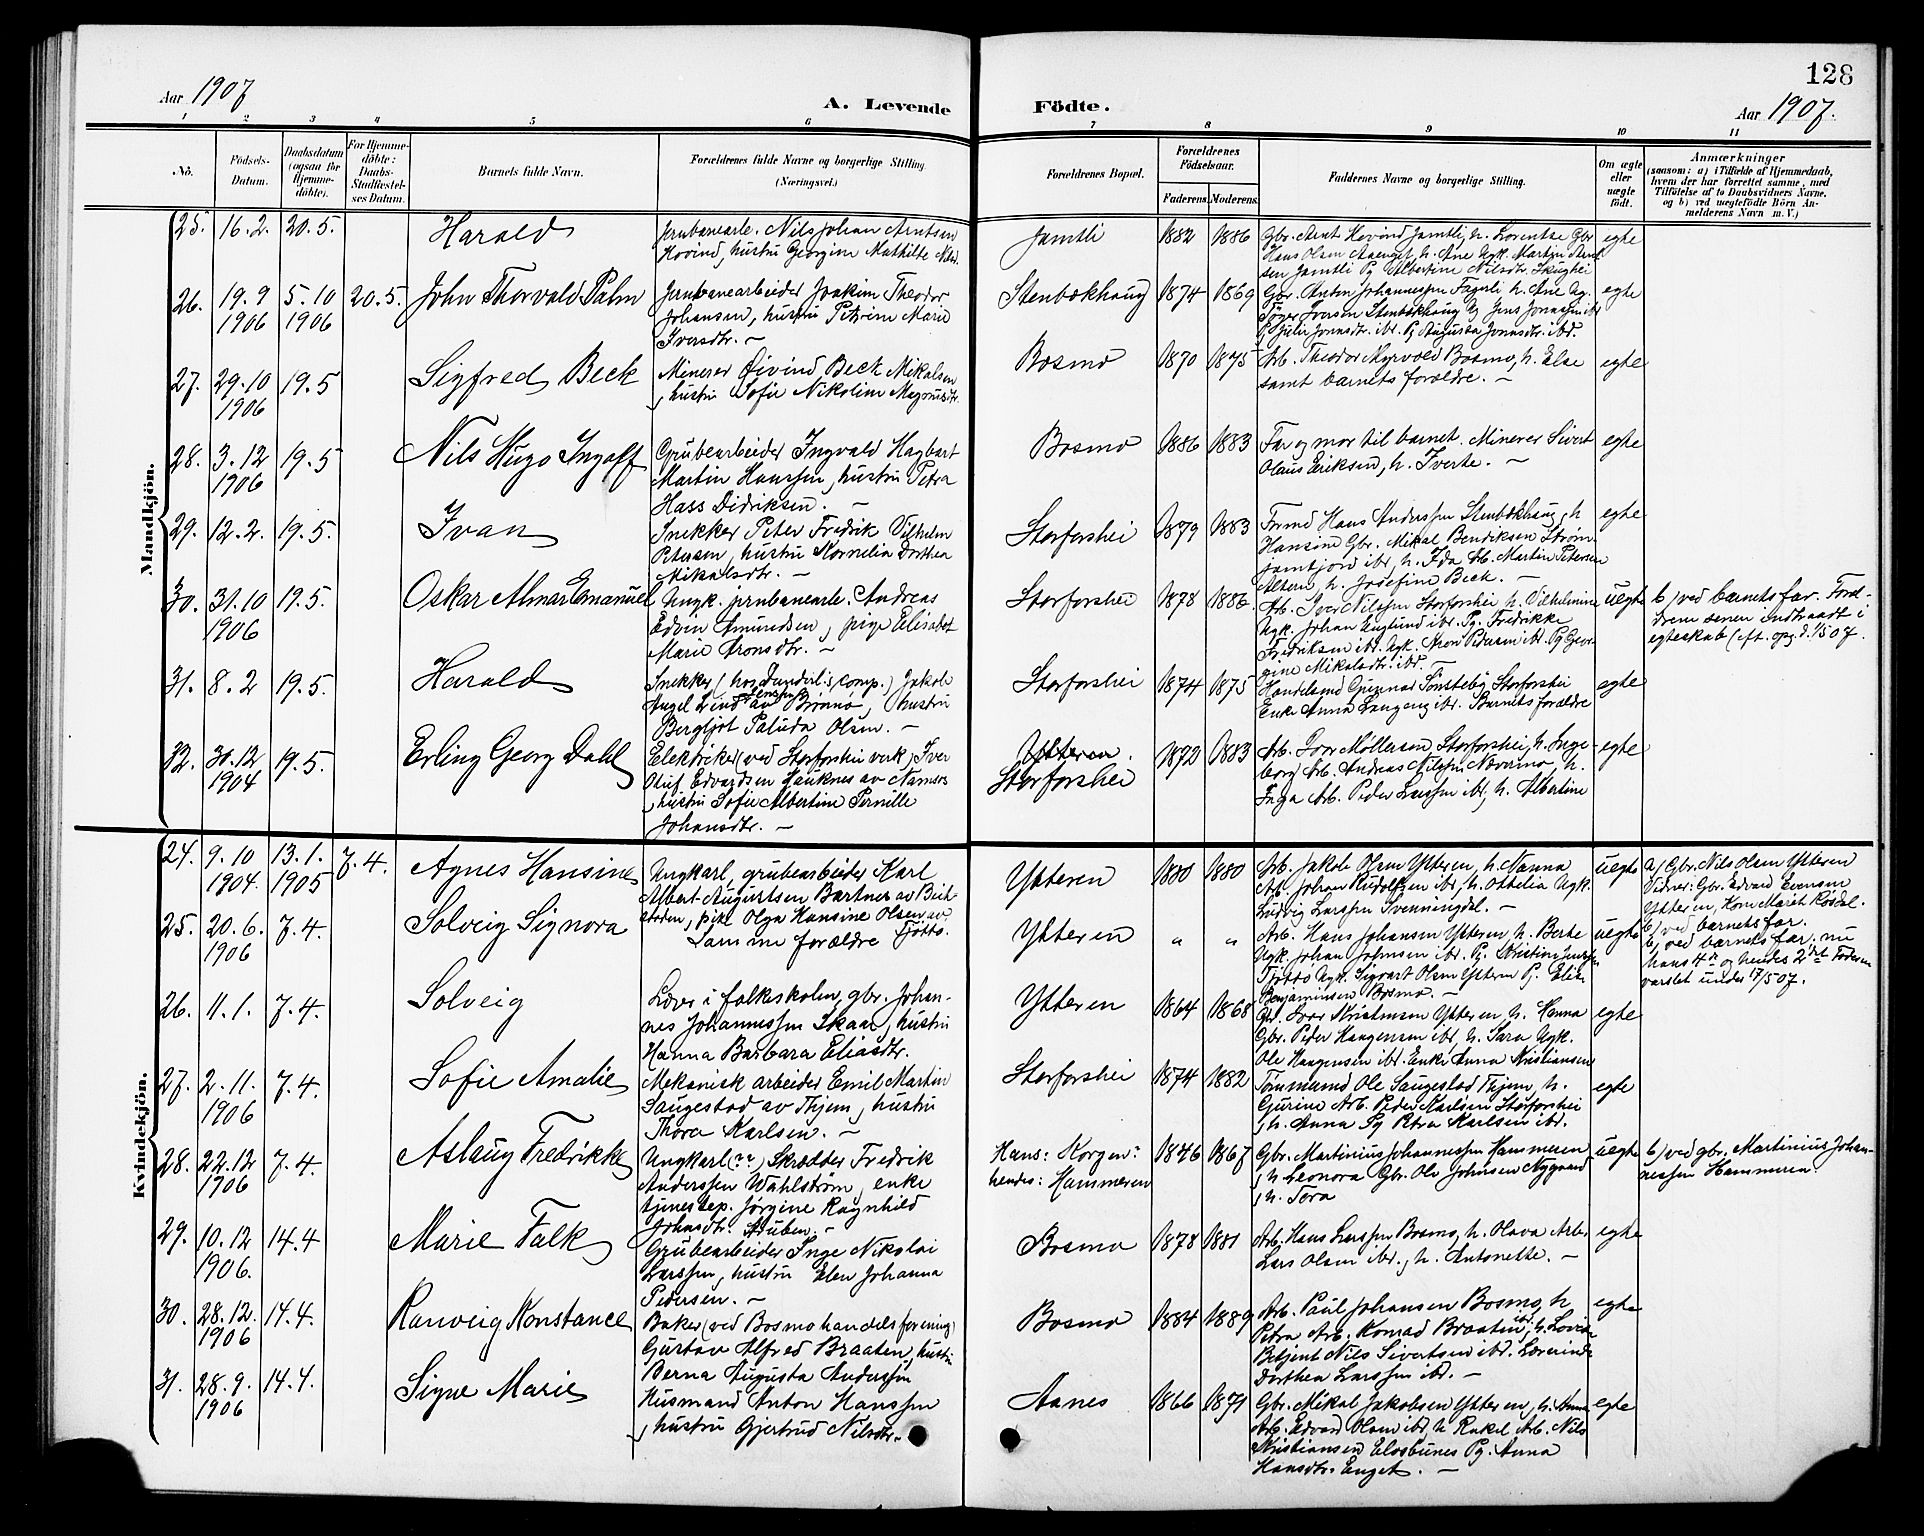 128
Aar 1907
A. Levende Födte.
Aar 1907.
1 2 3 4 5 6 7 8 9 10 11
No.
Födsels-Datum.
Daabsdatum (ogsaa for Hjemmedöbte).
For Hjemmedöbte: Daabs-Stadfæstelses Datum.
Barnets fulde Navn.
Forældrenes fulde Navne og borgerlige Stilling (Næringsvei.)
Forældrenes Bopæl.
Forældrenes Födselsaar.
Faderens. Moderens.
Faddernes Navne og borgerlige Stilling.
Om ægte eller uægte födt.
Anmærkninger
(saasom: a) i Tilfælde af Hjemmedaab, hvem der har forrettet samme, med Tilföielse af to Daabsvidners Navne, og b) ved uægtefödte Börn Anmelderens Navn m. V.)
Mandkjön.
25. 16.2. 20.5. Harald
Jrnbanearb. Nils Johan Arntsen
Hovind, hustru Georgine Mathilte Nilsd.
Jamtli 1882 1886
Gbr. Arnt Hovind Jamtli, h. Lorentse Gbr
Hans Olsen Aaenget, h. Ane Ugk. Martin Arnt
sen Jamtli Pg Albertine Nilsdtr. Skughei
egte
26. 19.9 1906 5.10 1906 20.5. John Thorvald Palm
Jernbanearbeider Joakim Theodor
Johansen, hustru Petrine Marie
Iversdtr. —
Stenbækhaug 1874 1869
Gbr. Anton Johannessen Fagerli h. Ane Ug.
Töger Iversen Stenbækhaug Ug Jens Jonassen ibr
Pg Julie Jonasdtr. ibr. Pg Augusta Jonasdtr. ibd.
egte
27. 29.10 1906 19.5 Sigfred Beck
Minerer Öivind Beck Mikalsen
, hustru Sofie Nikoline Magnusdtr.
Bosmo 1870 1875
Arb. Theodor Myrvold Bosmo, h. Else
samt barnets forældre. —
egte
28. 3.12 1906 19.5 Nils Hugo Ingolf
Grubearbeider Ingvald Hagbart
Martin Hanssen, hustru Petra
Hass Didriksen. —
Bosmo 1886 1883
Far og mor til barnet. Minerer Sivert
Olaus Eriksen, h. Iverte. —
egte
29. 12.2. 19.5. Ivan
Snekker Peter Fredrik Vilhelm
Petersen, hustru Kornelia Dorthea
Mikalsdtr. —
Storforshei 1879 1883
Formd Hans Anderssen Stenbækhaug, h
Hansine Gbr. Mikal Bendiksen Ström-
jamtjord ibr, h. Ida Arb. Martin Petersen
Altern, h. Josefine Beck. —
egte
30. 31.10 1906 19.5. Oskar Almar Emanuel
Ungk. jrnbanearb. Andreas
Edvin Amundsen, pige Elisabet
Marie Aronsdtr. —
Storforshei 1878 1886
Arb. Iver Nilssen Storforshei h. Vilhelmine
Ugk. Johan Englund ibr. Pg. Fredrikke
Fredriksen ibd. Ugk. Aron Pedersen ibd. Pg Geor-
gine Mikalsdtr. ibd.
uegte
b) ved barnets far. Foræl-
drene senere indtraadt i
egteskab (eft. opg. d. 1/5 07.
31. 8.2 19.5. Harald
Snekker (hos Dunderl. comp.) Jakob
Angel Lind Jensen av Brönö, hustru
Bergljot Paluda Olsen. —
Storforshei 1874 1875
Handelsmd Gunnar Tönsteby Storforshei
Enke Anna Langeng ibr. Barnets forældre
egte
32. 30.12 1904 19.5. Erling Georg Dahl
Elektriker (ved Storforshei verk) Iver
Oluf Edvardsen Hauknes av Namsos
, hustru Sofie Albertine Pernille
Johansdtr. —
Ytteren.
Storforshei 1872 1883
Arb. Ivar Möllersen Storforshei, h. Inge-
borg Arb. Andreas Nilssen Nævermo, h.
Inga Arb. Peder Larssen ibr, h. Albertine
egte
Kvindekjön.
24. 9.10 1904. 13.1. 1905 7.4. Agnes Hansine
Ungkarl, grubearbeider Karl
Albert Augustsen Bartnes av Beit-
staden, pike Olga Hansine Olsen av
Tjötto.
Ytteren 1880 1880
Arb. Jakob Olsen Ytteren, h. Nanna
Arb. Johan Rudolfsen ibr, h. Othelia Ugk.
Ludvig Larssen Svenningdal. —
uegte
a) Gbr. Nils Olsen Ytteren
Vidner: Gbr. Edvard Evensen
Ytteren, Kone Maret Rösdal.
b) ved barnets far.
25. 20.6. 1906 7.4. Solveig Signora
Samme forældre
Ytteren " "
Arb. Hans Johansen Ytteren h. Berte
Ugk. Johan Johnsen ibr. Pg. Kristine Jenssen
Tjöttö Ugk. Sigvart Olsen Ytteren Pg. Elen
Benjaminsen Bosmo. —
uegte
b) ved barnets far. nu
hans 4de og hendes 2det Födesen
varslet under 17/5 07.
26. 11.1. 7.4. Solveig
Lærer i folkeskolen, gbr. Johan-
nes Johannessen Skaar, hustru
Hanna Barbara Eliasdtr.
Ytteren 1864 1868
Gbr. Ivar Kristensen Ytteren h. Hanna
Gbr. Peder Haagensen ibr, h. Sara Ugk.
Ole Haagensen ibr. Enke Anna Kristiansen
egte
27. 2.11. 1906 7.4. Sofie Amalie
Mekanisk arbeider Emil Martin
Saugestad av Thjem, hustru
Thora Karlsen. —
Storforshei 1874 1882
Tömmermd Ole Saugestad Thjem, h.
Gurine Arb. Peder Karlsen Storforshei
, h. Anna Pg Petra Karlsen ibr.
egte
28. 22.12 1906 7.4. Aslaug Fredrikke
Ungkarl (??) Skrædder Fredrik
Anderssen Wahlström, enke
tjenestep. Jörgine Ragnhild
Johnsdtr. Auben. —
Hans: Korgen:
hendes: Hammeren 1846 1867
Gbr. Martinius Johannessen Hammeren
, h. Leonora Gbr. Ole Johnsen Nygaard
, h. Tora
uegte
b) ved gbr. Martinius Johan-
nessen Hammeren.
29. 10.12 1906. 14.4 Marie Falk
Grubearbeider Inge Nikolai
Larssen, hustru Elen Johanna
Pedersen. —
Bosmo 1878 1881
Arb. Hans Larssen Bosmo, h. Olava Arb.
Lars Olsen ibr., h. Antonette. —
egte
30. 28.12. 1906 14.4. Ranveig Konstance
Baker (ved Bosmo handelsforening)
Gustav Alfred Braaten, hustru
Berna Augusta Anderssen
Bosmo 1884 1889
Arb. Paul Johansen Bosmo, h
Petra Arb. Konrad Braaten ibr., h. Lovise
Betjent Nils Sivertsen ibd. Lærerinde
Dorthea Larssen ibd. —
egte
31. 28.9. 1906 14.4. Signe Marie
Husmand Anton Hanssen
, hustru Gjertrud Nilsdtr.
Aanes 1866 1871
Gbr. Mikal Jakobsen Ytteren, h. Anna
Arb. Edvard Olsen ibd, h Rakel Arb. Nils
Kristiansen Elosbunes Pg. Anna
Hansdtr. Enget. —
egte